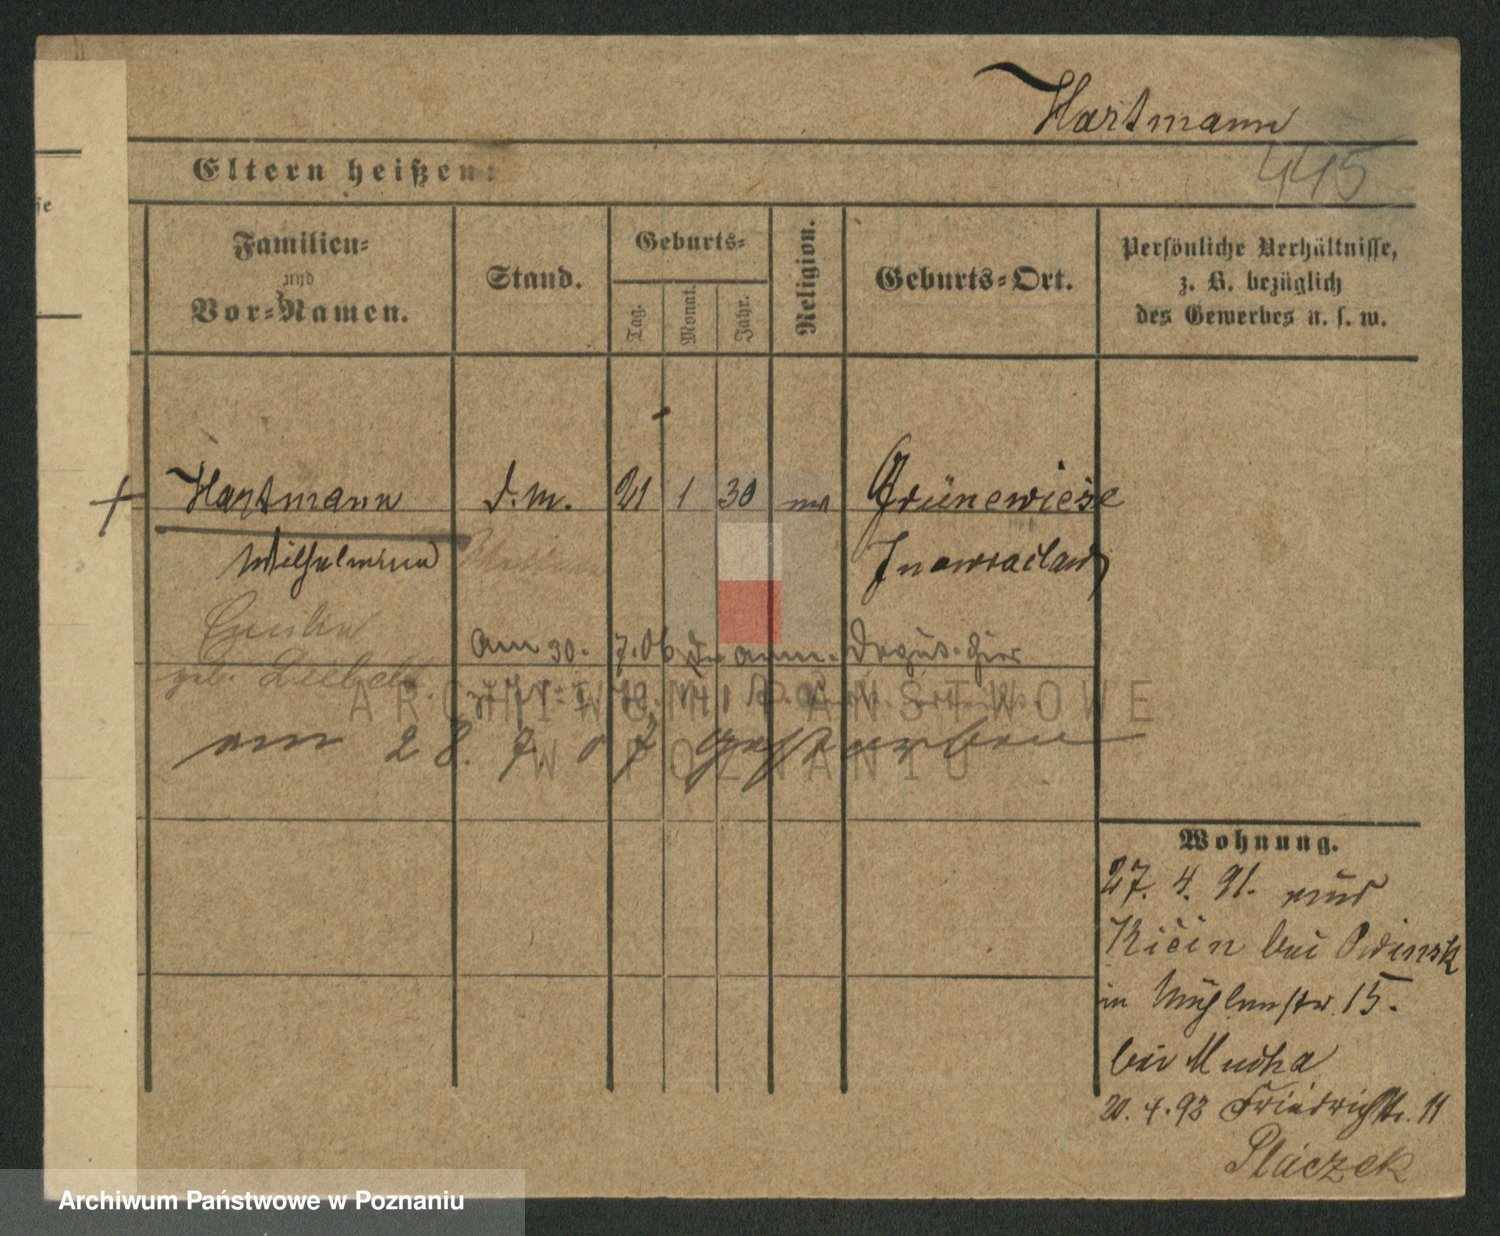 Hartmann
445
Eltern heißen:
Familien-
und
Vor-Namen.
Stand.
Geburts-
Tag.
Monat.
Jahr.
Religion.
Geburts-Ort.
Persönliche Verhältnisse,
z. B. bezüglich
des Gewerbes u. s. w.
Hartmann
d. M.
21
1
30
Grünewiese
Wilhelmine
Inowraclaw
geb.
am 30. 7. 06
hier
am 28. 7. 07 gestorben
ARCHIWUM PAŃSTWOWE
W POZNANIU
Wohnung.
27. 4. 91. aus
Kicin bei
in Mühlenstr. 15.
bei Mucha
20. 4. 93 Friedrichstr. 11
Placzek
Archiwum Państwowe w Poznaniu